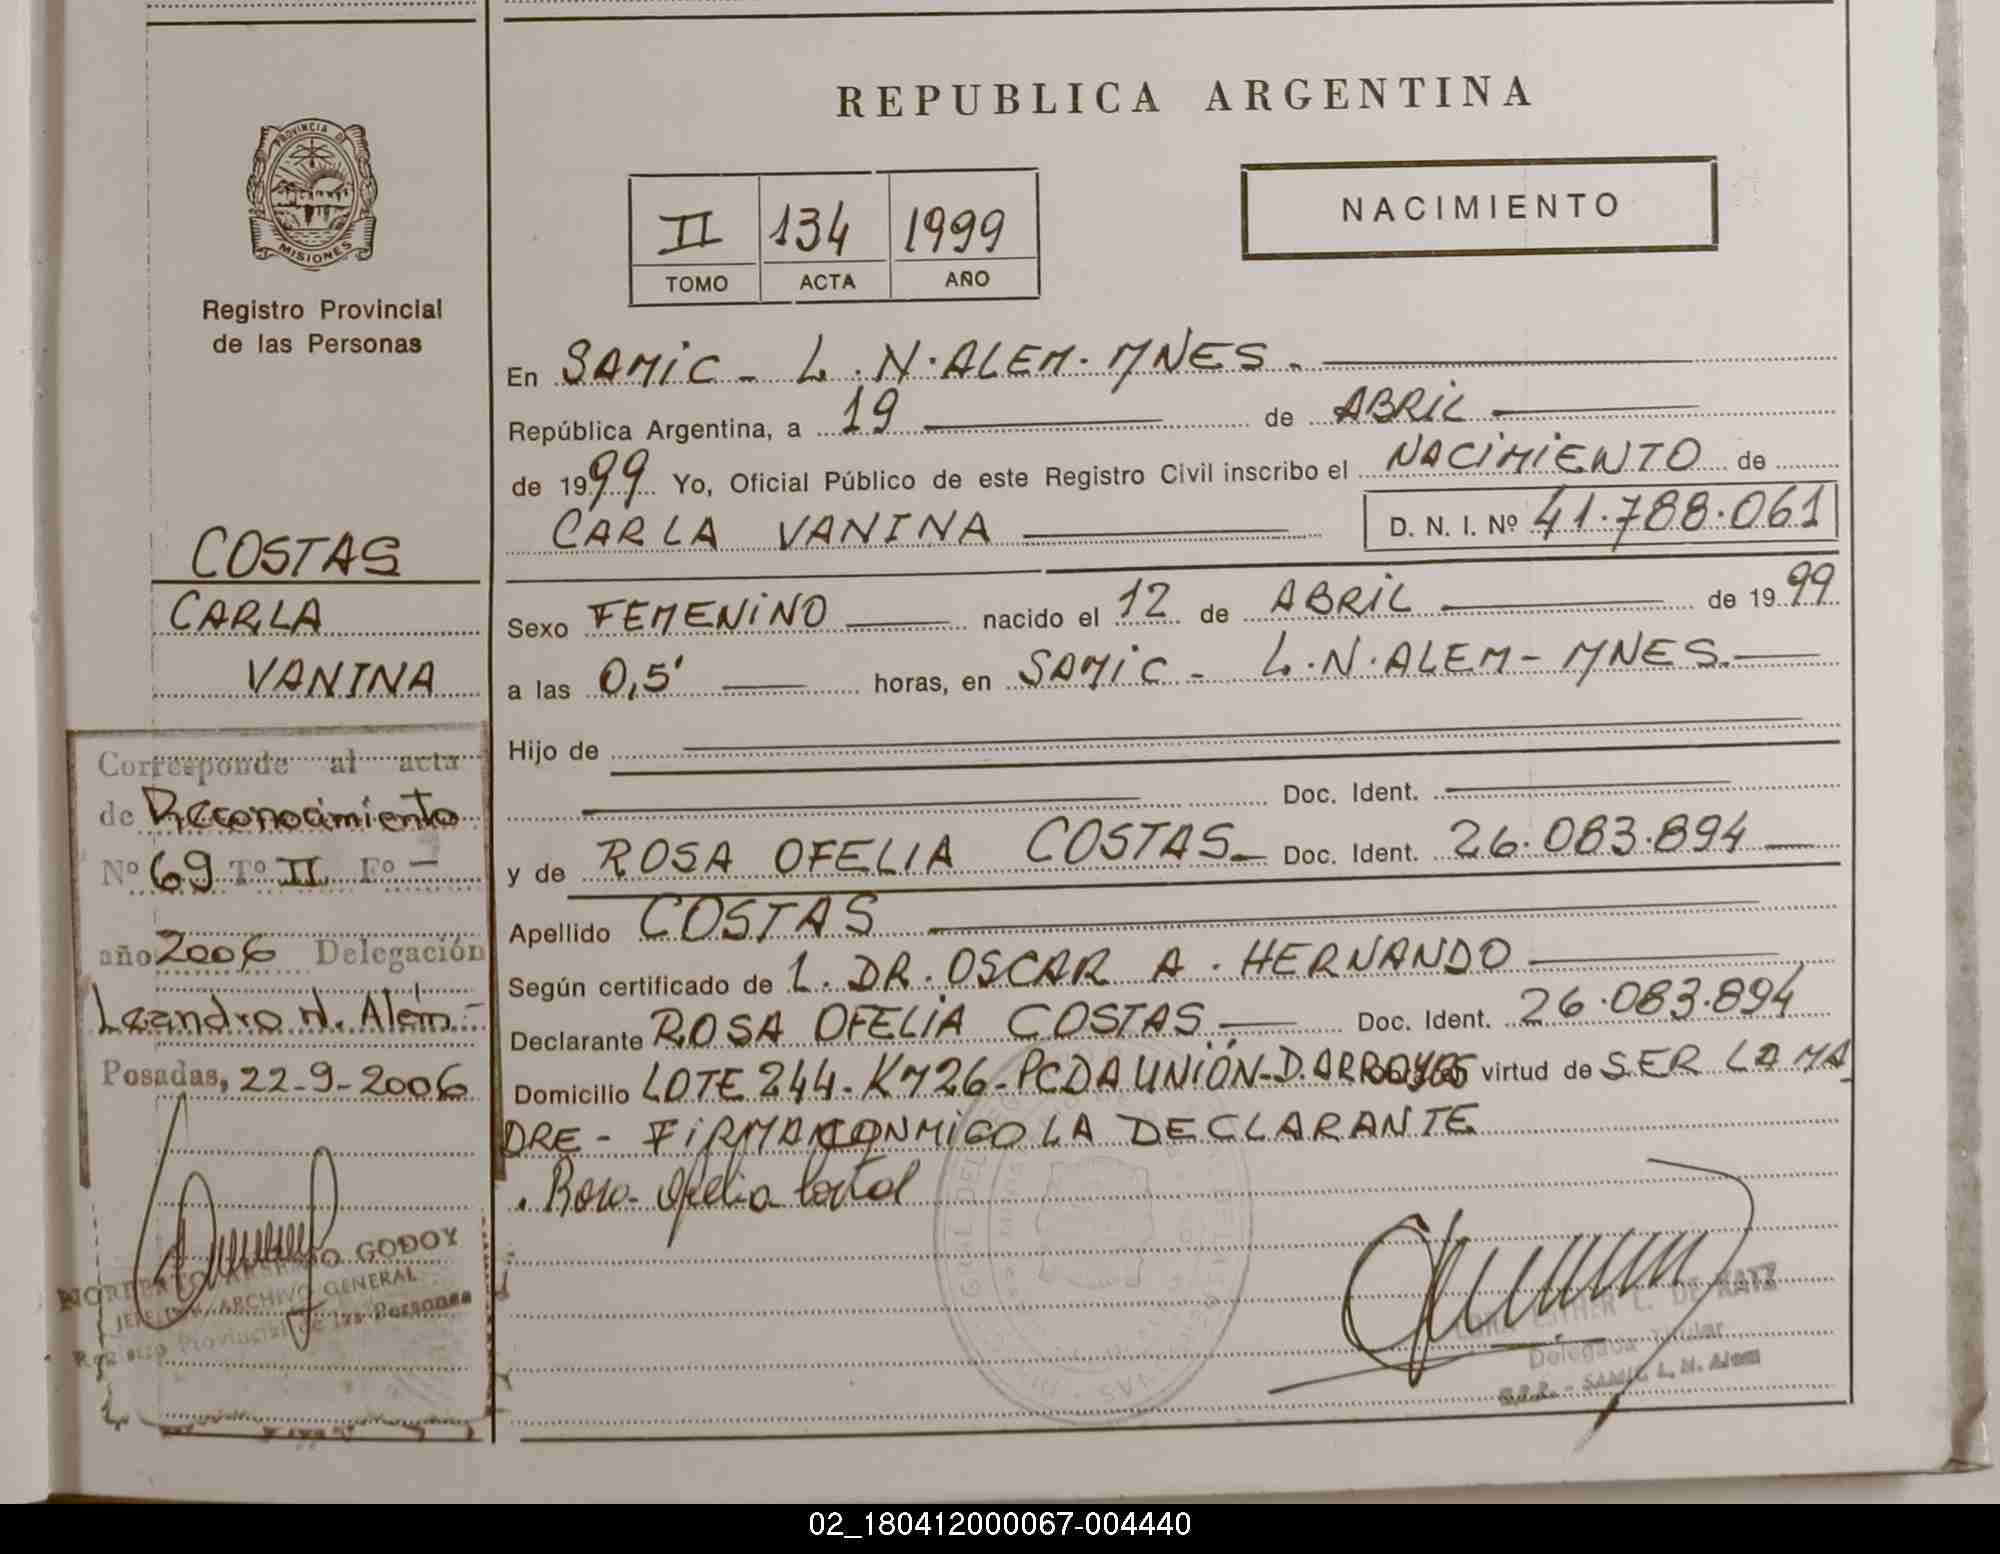 REPUBLICA ARGENTINA
PROVINCIA DE
MISIONES
Registro Provincial
de las Personas
II 134 1999
TOMO ACTA AÑO
NACIMIENTO
En SAMIC - L.N.ALEM. MNES.
República Argentina, a 19 de ABRIL
de 1999 Yo, Oficial Público de este Registro Civil inscribo el NACIMIENTO de
CARLA VANINA D. N. I. Nº 41.788.061
Sexo FEMENINO nacido el 12 de ABRIL de 1999
a las 0,5' horas, en SAMIC - L.N.ALEM - MNES.
Hijo de
Doc. Ident.
y de ROSA OFELIA COSTAS Doc. Ident. 26.083.894
Apellido COSTAS
Según certificado de L. DR. OSCAR A. HERNANDO
Declarante ROSA OFELIA COSTAS Doc. Ident. 26.083.894
Domicilio LOTE 244 - KM26 - PCDA UNIÓN - D. ARROYOS virtud de SER LA MA
DRE - FIRMA CONMIGO LA DECLARANTE
Rosa Ofelia
DE RATZ
Delegada Titular
R.P.P. - SAMIC L. N. Alem
COSTAS
CARLA
VANINA
Corresponde al acta
de Reconocimiento
Nº 69 Tº II Fº -
año 2006 Delegación
Leandro N. Alem -
Posadas, 22-9-2006
NORBERTO GODOY
ARCHIVO GENERAL
Registro Provincial de las Personas
02_180412000067-004440